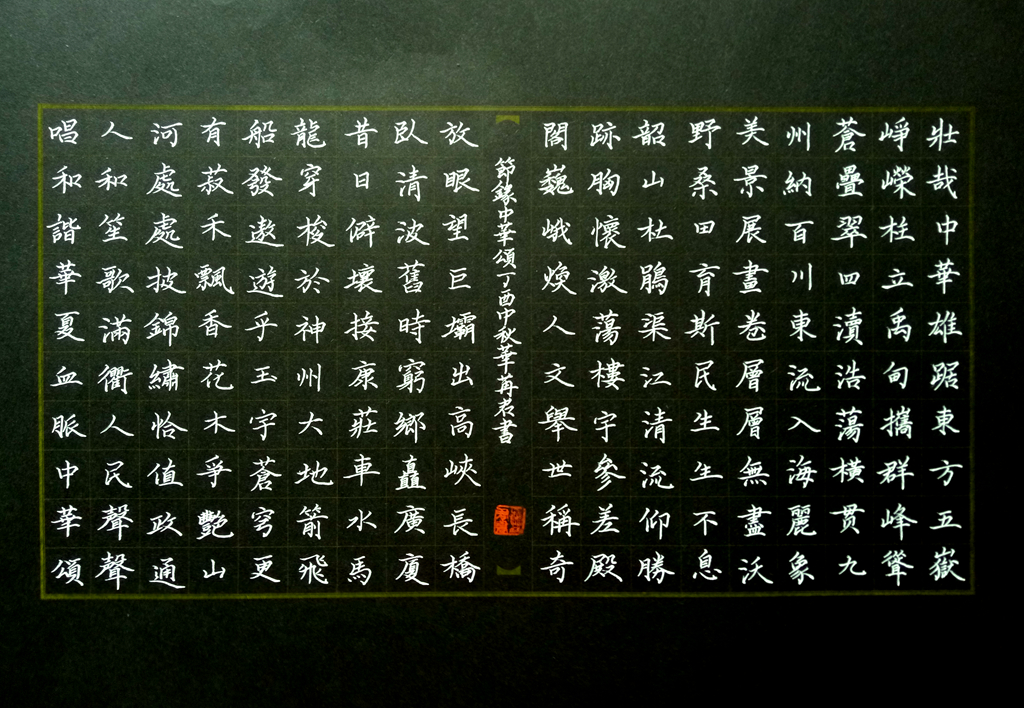 壯哉中華雄踞東方五嶽
崢嶸柱立禹甸攜群峰聳
蒼疊翠四瀆浩蕩橫贯九
州納百川東流入海麗象
美景展畫卷層層無盡沃
野桑田育斯民生生不息
韶山杜鵑渠江清流仰勝
跡胸懷激蕩樓宇參差殿
閣巍峨煥人文舉世稱奇
節緣中華頌丁酉中秋華苒若書
放眼望巨壩出高峽長橋
臥清波舊時窮鄉矗廣廈
昔日僻壤接康莊車水馬
龍穿梭於神州大地箭飛
船發遨遊乎玉宇蒼穹更
有菽禾飄香花木爭艷山
河處處披錦繡恰值政通
人和笙歌滿衢人民聲聲
唱和諧華夏血脈中華頌